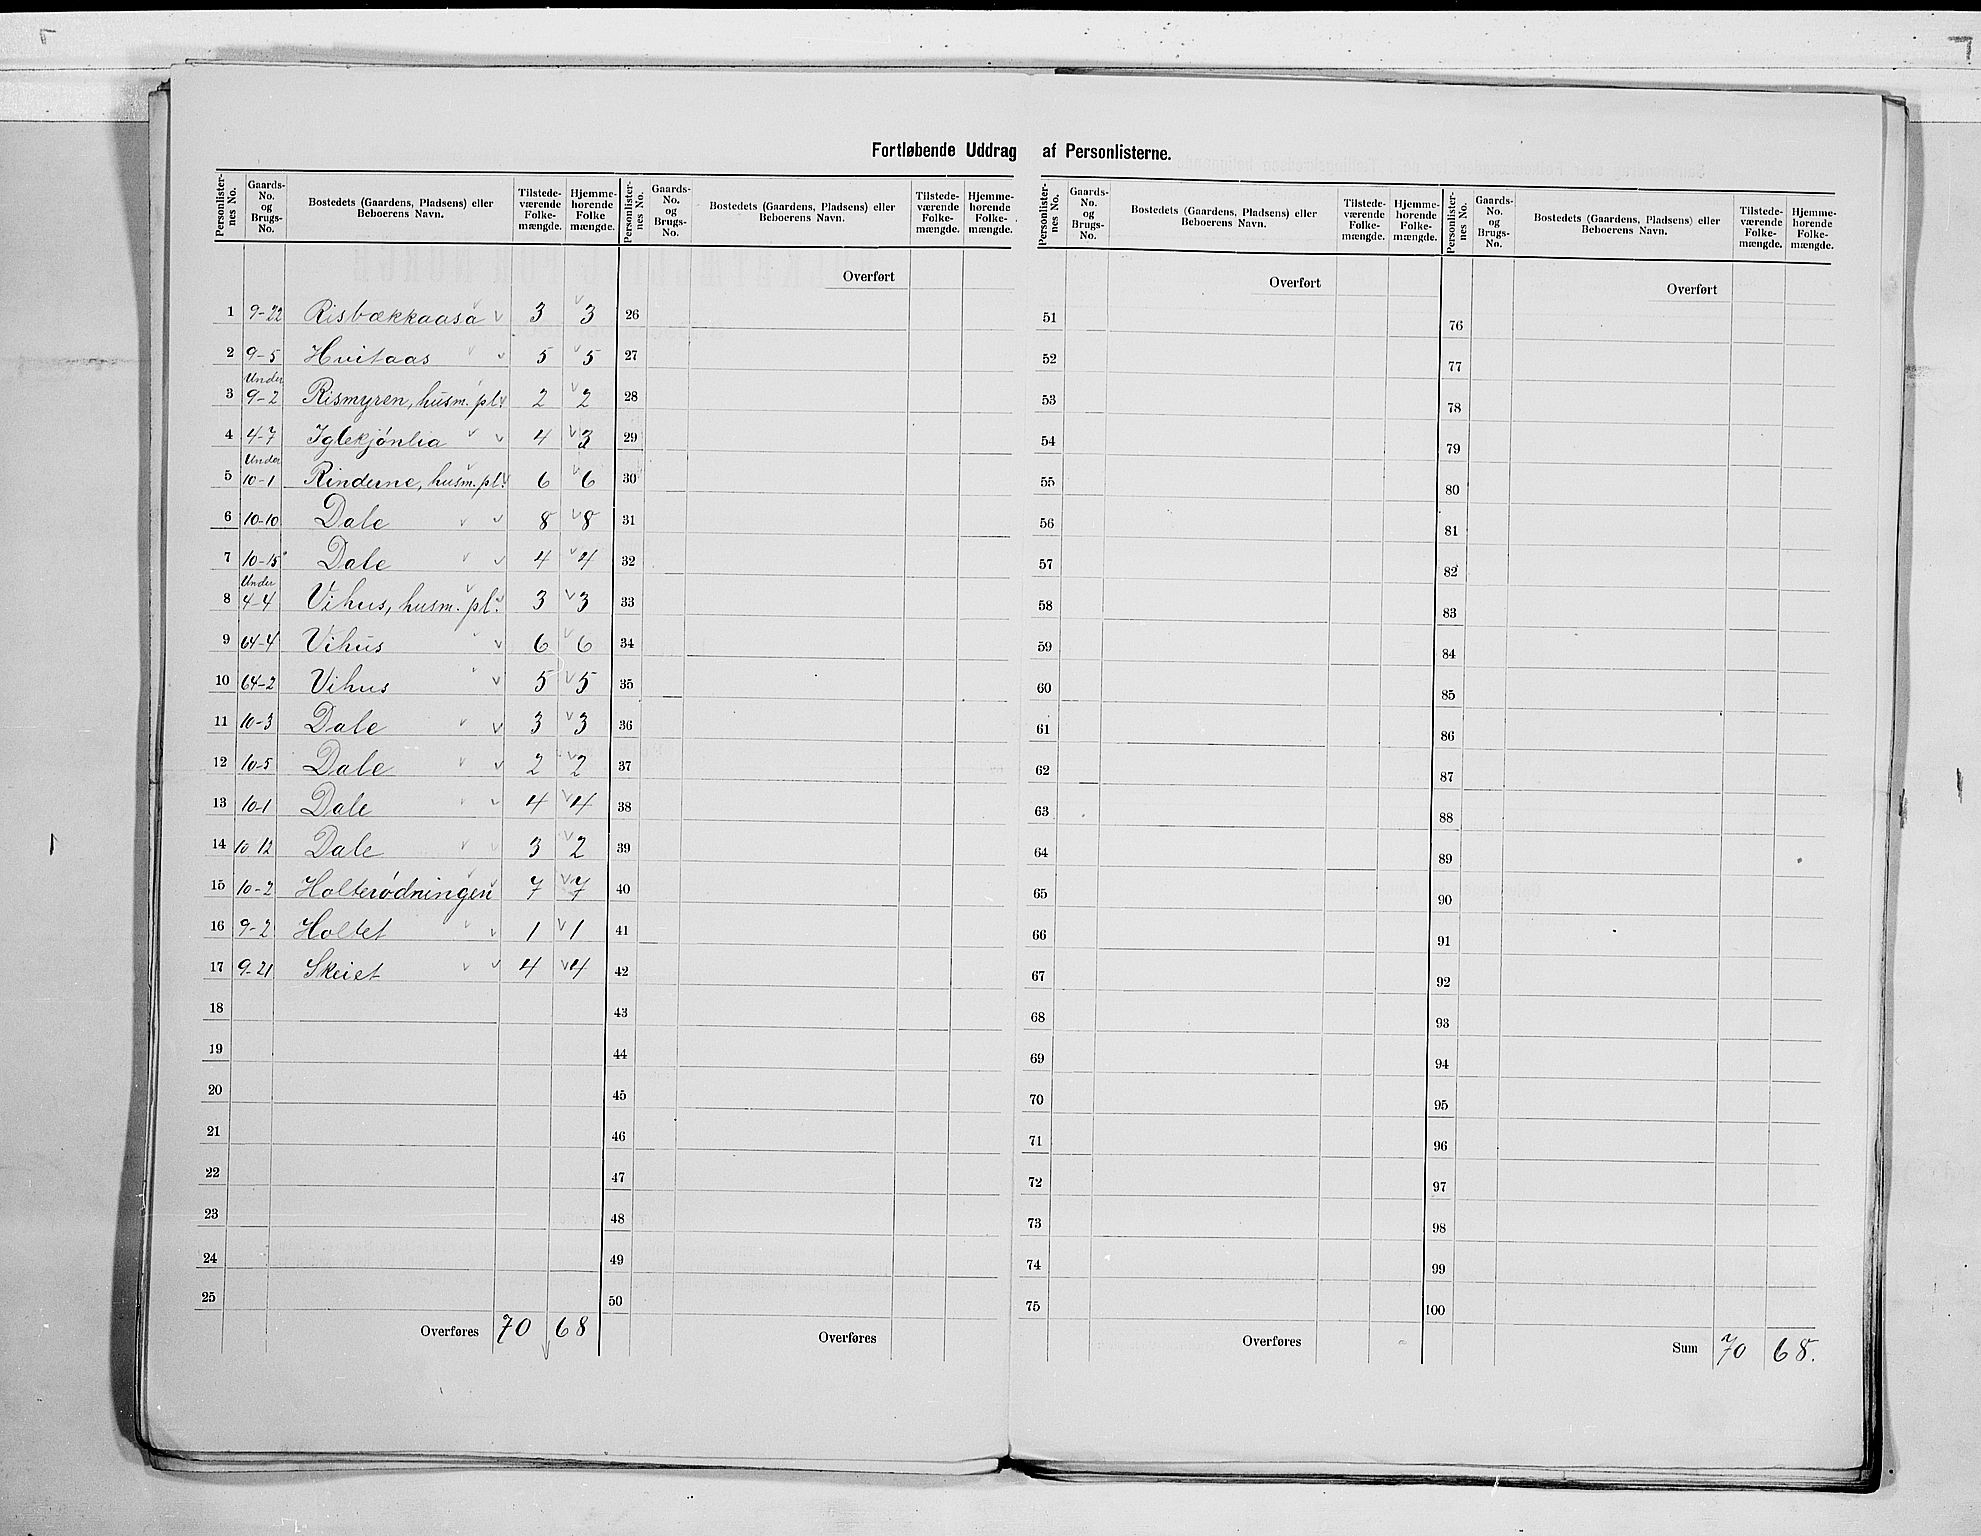 Fortløbende Uddrag af Personlisterne.
Personlister-nes No. Gaards-No. og Brugs-No. Bostedets (Gaardens, Pladsens) eller Beboerens Navn. Tilstede-værende Folke-mængde. Hjemme-hørende Folke mængde.
1 9-22 Risbækkaasa v 3 v 3
2 9-5 Hvitaas v v 5 v 5
3 Under 9-2 Rismyren, husm. pl. 2 v 2
4 4-7 Iglekjønlia v v 4 v 3
5 Under 10-1 Rinderne, husm. pl. 6 v 6
6 10-10 Dale v v 8 v 8
7 10-15 Dale v v 4 v 4
8 Under 4-4 Vihus, husm. pl. 3 v 3
9 64-4 Vihus v 6 v 6
10 64-2 Vihus v 5 v 5
11 10-3 Dale v v 3 v 3
12 10-5 Dale v v 2 v 2
13 10-1 Dale v v 4 v 4
14 10 12 Dale v v 3 v 2
15 10-2 Holterødningen 7 v 7
16 9-2 Holtet v v 1 v 1
17 9-21 Skeiet v v 4 v 4
18
19
20
21
22
23
24
25
Overføres 70 68
Personlister-nes No. Gaards-No. og Brugs-No. Bostedets (Gaardens, Pladsens) eller Beboerens Navn. Tilstede-værende Folke-mængde. Hjemme-hørende Folke-mængde.
Overført
26
27
28
29
30
31
32
33
34
35
36
37
38
39
40
41
42
43
44
45
46
47
48
49
50
Overføres
Personlister-nes No. Gaards-No. og Brugs-No. Bostedets (Gaardens, Pladsens) eller Beboerens Navn. Tilstede-værende Folke-mængde. Hjemme-hørende Folke-mængde.
Overført
51
52
53
54
55
56
57
58
59
60
61
62
63
64
65
66
67
68
69
70
71
72
73
74
75
Overføres
Personlister-nes No. Gaards-No. og Brugs-No. Bostedets (Gaardens, Pladsens) eller Beboerens Navn. Tilstede-værende Folke-mængde. Hjemme-hørende Folke-mængde.
Overført
76
77
78
79
80
81
82
83
84
85
86
87
88
89
90
91
92
93
94
95
96
97
98
99
100
Sum 70 68.